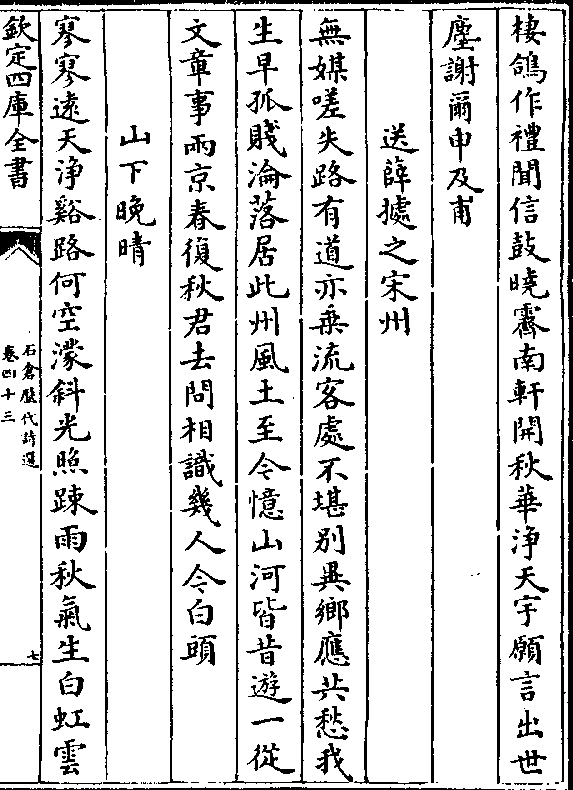 棲鴿作禮聞信鼓曉霽南軒開秋華淨天宇願言出世
塵謝爾申及甫
送薛據之宋州
無媒嗟失路有道亦乗流客處不堪别異鄉應共愁我
生早孤賤淪落居此州風土至今憶山河皆昔遊一從
文章事兩京春復秋君去問相識幾人今白頭
山下晚晴
寥寥遠天淨谿路何空濛斜光照疎雨秋氣生白虹雲
欽定四庫全書
石倉歴代詩選
卷四十三
七